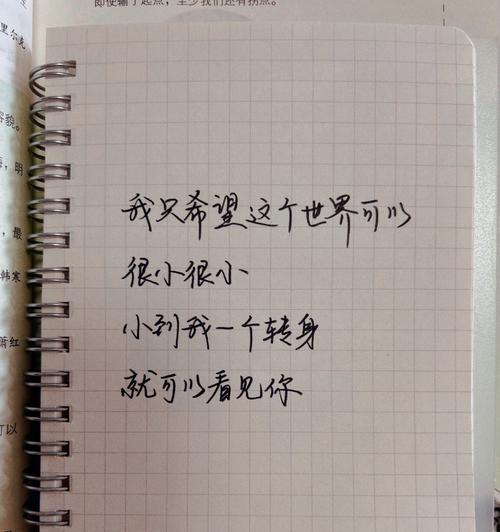 即使输了起点，至少我们还有拐点。
里尔克
容貌。
明
最
韩寒
萧红
可以
我只希望这个世界可以
很小很小
小到我一个转身
就可以看见你